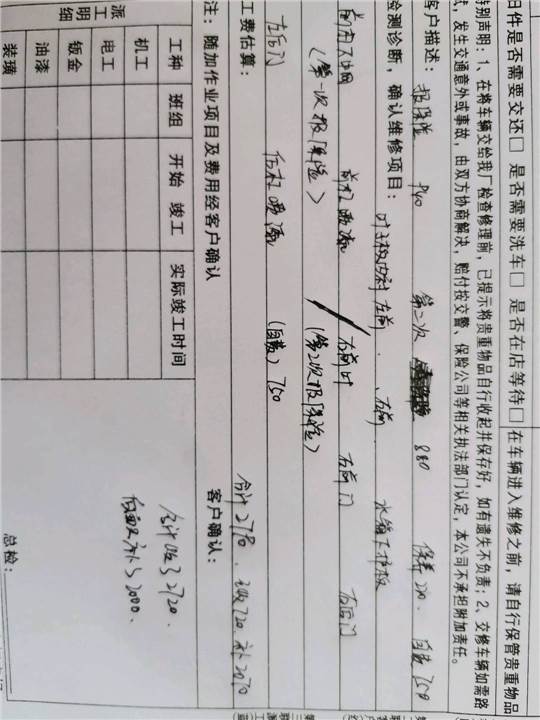 旧件是否需要交还□ 是否需要洗车□ 是否在店等待□ 在车辆进入维修之前，请自行保管贵重物品
特别声明：1、在将车辆交给我厂检查修理前，已提示将贵重物品自行收起并保存好，如有遗失不负责；2、交修车辆如需路
试，发生交通意外或事故，由双方协商解决，赔付按交警、保险公司等相关执法部门认定，本公司不承担附加责任。
客户描述： 报保险 840 第二次 880 保养 220. 自费 750
检测诊断，确认维修项目： 叶子板内衬 左前、右前. 水箱下护板
前杠喷漆 右前叶 右前门 右后门
(第一次报保险) (第2次报保险)
左后门 后杠喷漆 (自费) 750
工费估算： 合计2790
注：随加作业项目及费用经客户确认 客户确认：
派工明细
工种 班组 开始 竣工 实际竣工时间
机工
电工
钣金
油漆
装璜
合计收了2720.
总检：